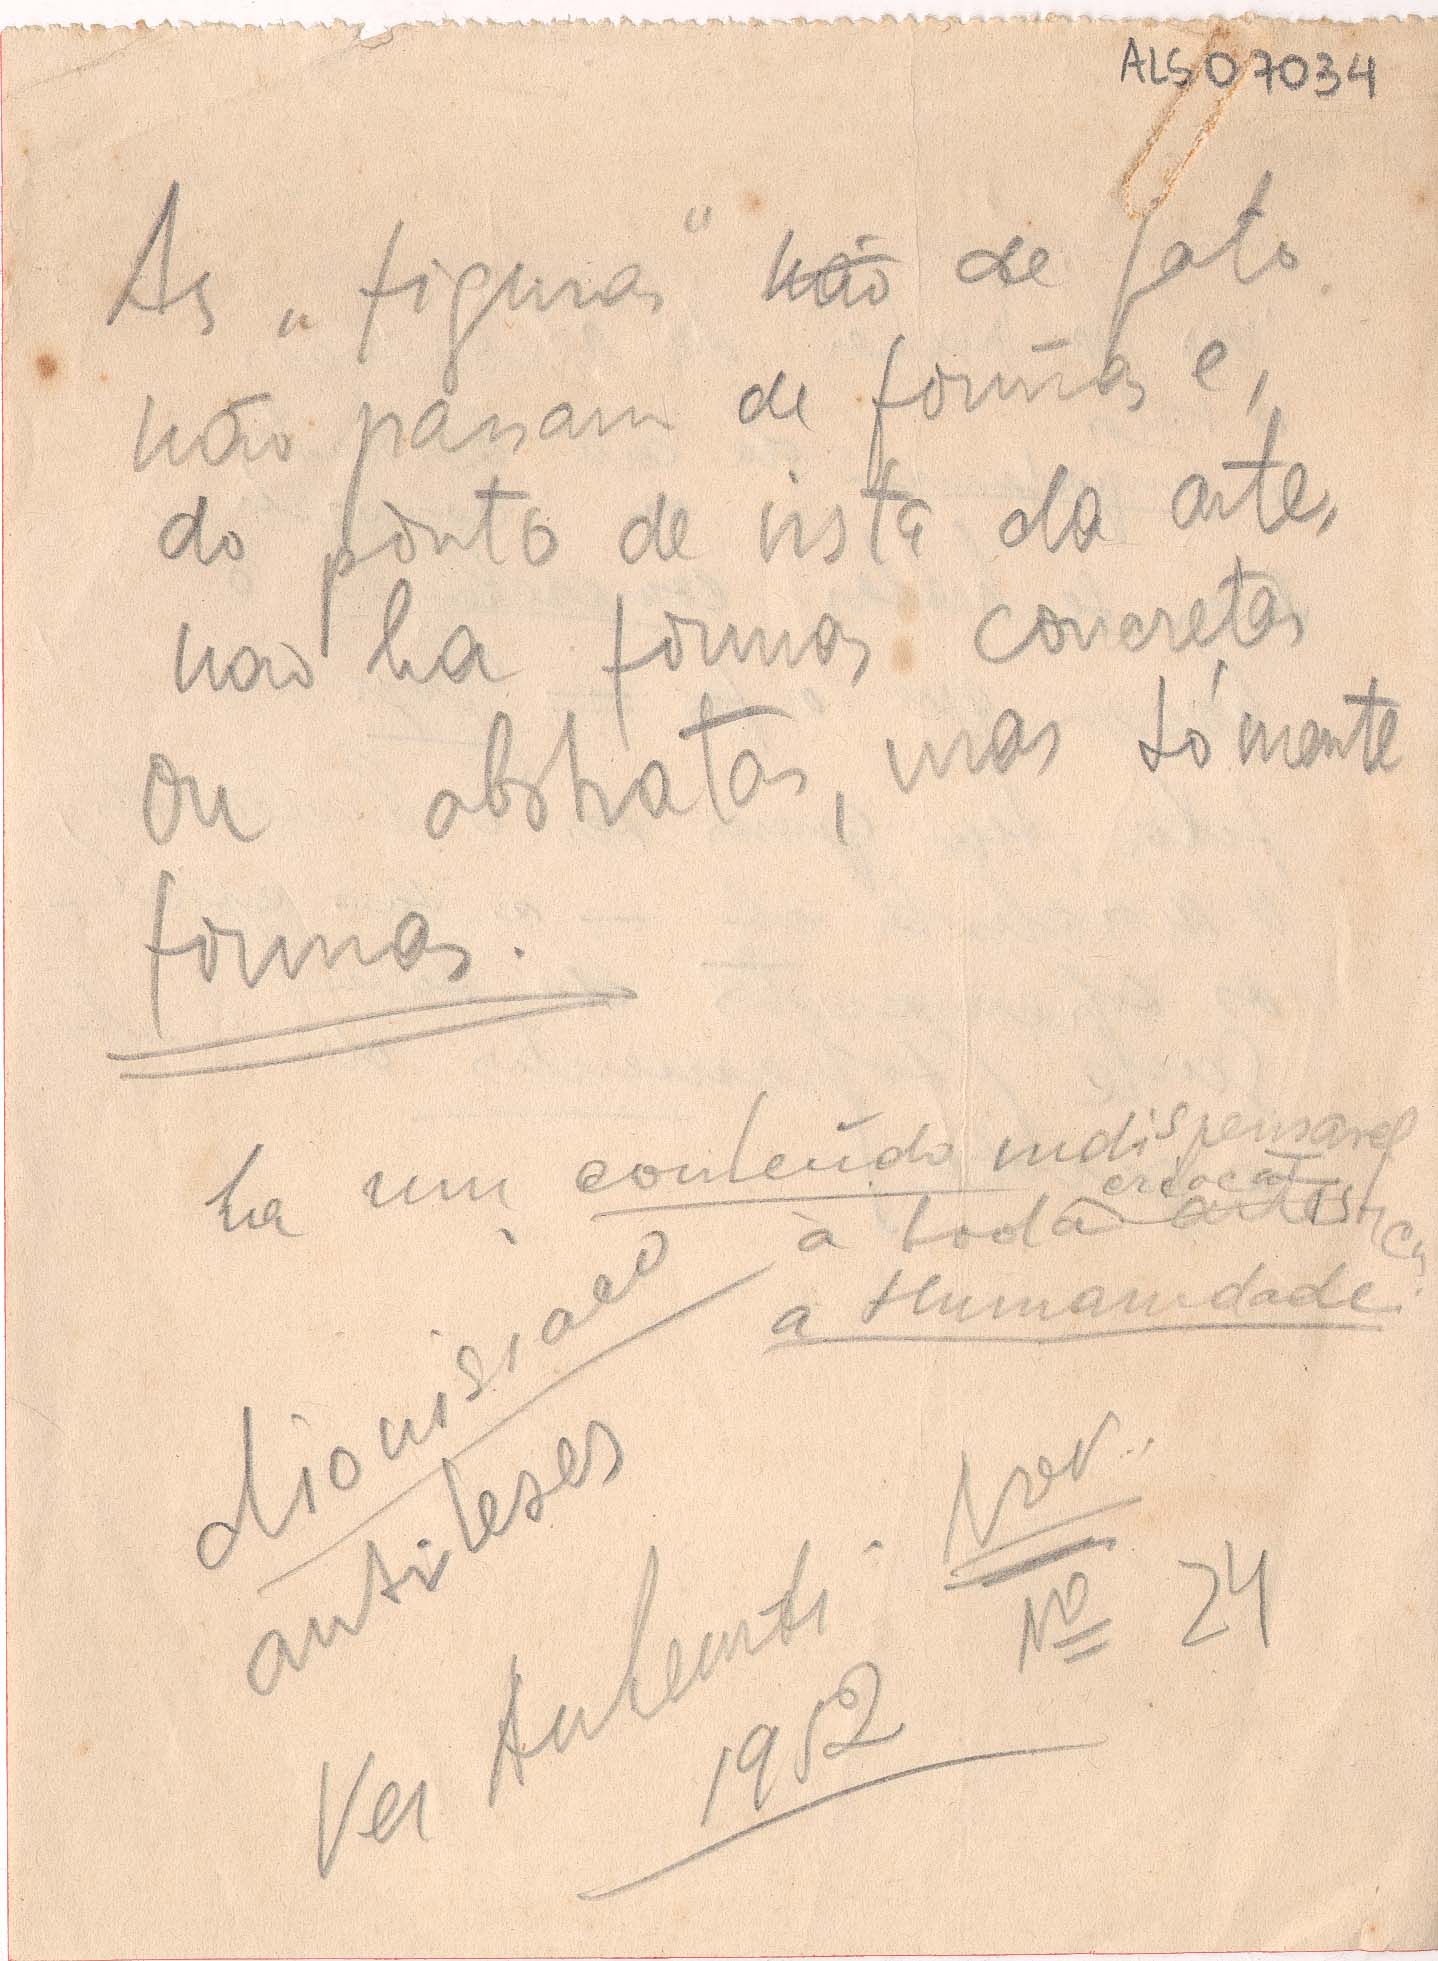 ALS07034
As „figuras" não de fato
não passam de formas e,
do ponto de vista da arte,
não ha formas concretas
ou abstratas, mas sómente
formas.
ha um conteúdo indispensavel
à toda creação artistica
a Humanidade.
dionisiaco
antiteses
Nov.
Nº 24
Ver
1952